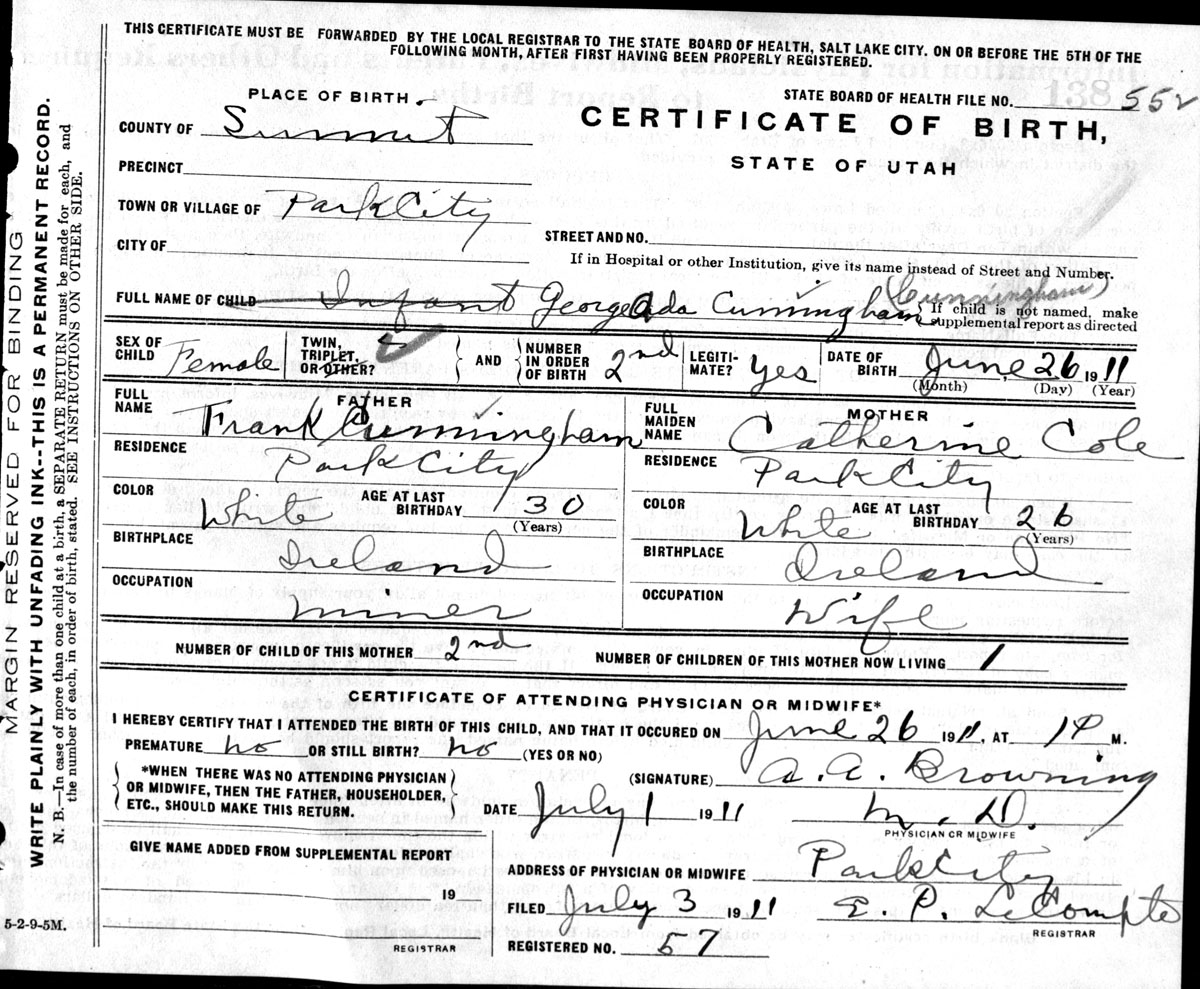 THIS CERTIFICATE MUST BE FORWARDED BY THE LOCAL REGISTRAR TO THE STATE BOARD OF HEALTH, SALT LAKE CITY, ON OR BEFORE THE 5TH OF THE
FOLLOWING MONTH, AFTER FIRST HAVING BEEN PROPERLY REGISTERED.
MARGIN RESERVED FOR BINDING
WRITE PLAINLY WITH UNFADING INK---THIS IS A PERMANENT RECORD.
N. B.—In case of more than one child at a birth, a SEPARATE RETURN must be made for each, and
the number of each, in order of birth, stated. SEE INSTRUCTIONS ON OTHER SIDE.
PLACE OF BIRTH.
STATE BOARD OF HEALTH FILE NO. 552
138
COUNTY OF Summit
CERTIFICATE OF BIRTH,
STATE OF UTAH
PRECINCT
TOWN OR VILLAGE OF Park City
CITY OF
STREET AND NO.
If in Hospital or other Institution, give its name instead of Street and Number.
FULL NAME OF CHILD Infant George Ada Cunningham (Cunningham)
If child is not named, make
supplemental report as directed
SEX OF CHILD Female TWIN, TRIPLET, OR OTHER? AND NUMBER IN ORDER OF BIRTH 2nd LEGITI-MATE? yes DATE OF BIRTH June 26 1911
(Month) (Day) (Year)
FATHER
FULL NAME Frank Cunningham
RESIDENCE Park City
COLOR White AGE AT LAST BIRTHDAY 30
(Years)
BIRTHPLACE Ireland
OCCUPATION miner
MOTHER
FULL MAIDEN NAME Catherine Cole
RESIDENCE Park City
COLOR White AGE AT LAST BIRTHDAY 26
(Years)
BIRTHPLACE Ireland
OCCUPATION Wife
NUMBER OF CHILD OF THIS MOTHER 2nd NUMBER OF CHILDREN OF THIS MOTHER NOW LIVING 1
CERTIFICATE OF ATTENDING PHYSICIAN OR MIDWIFE*
I HEREBY CERTIFY THAT I ATTENDED THE BIRTH OF THIS CHILD, AND THAT IT OCCURED ON June 26 1911, AT 1P M.
PREMATURE no OR STILL BIRTH? no (YES OR NO)
*WHEN THERE WAS NO ATTENDING PHYSICIAN
OR MIDWIFE, THEN THE FATHER, HOUSEHOLDER,
ETC., SHOULD MAKE THIS RETURN.
(SIGNATURE) A. A. Browning
DATE July 1 1911 M. D.
PHYSICIAN OR MIDWIFE
GIVE NAME ADDED FROM SUPPLEMENTAL REPORT
19
REGISTRAR
ADDRESS OF PHYSICIAN OR MIDWIFE Park City
FILED July 3 1911 E. P. LeCompte
REGISTRAR
REGISTERED NO. 57
5-2-9-5M.